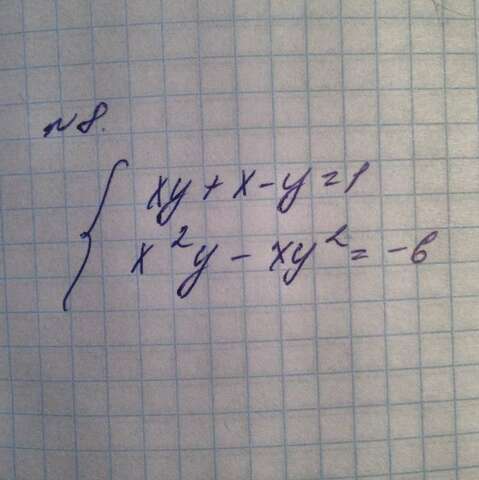 №8.
xy + x - y = 1
x²y - xy² = -6